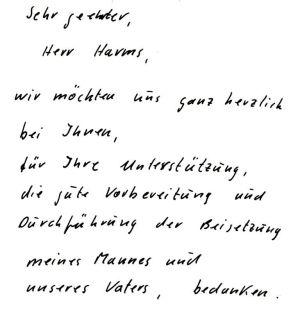 Sehr geehrter,
Herr Harms,
wir möchten uns ganz herzlich
bei Ihnen,
für Ihre Unterstützung,
die gute Vorbereitung und
Durchführung der Beisetzung
meines Mannes und
unseres Vaters, bedanken.